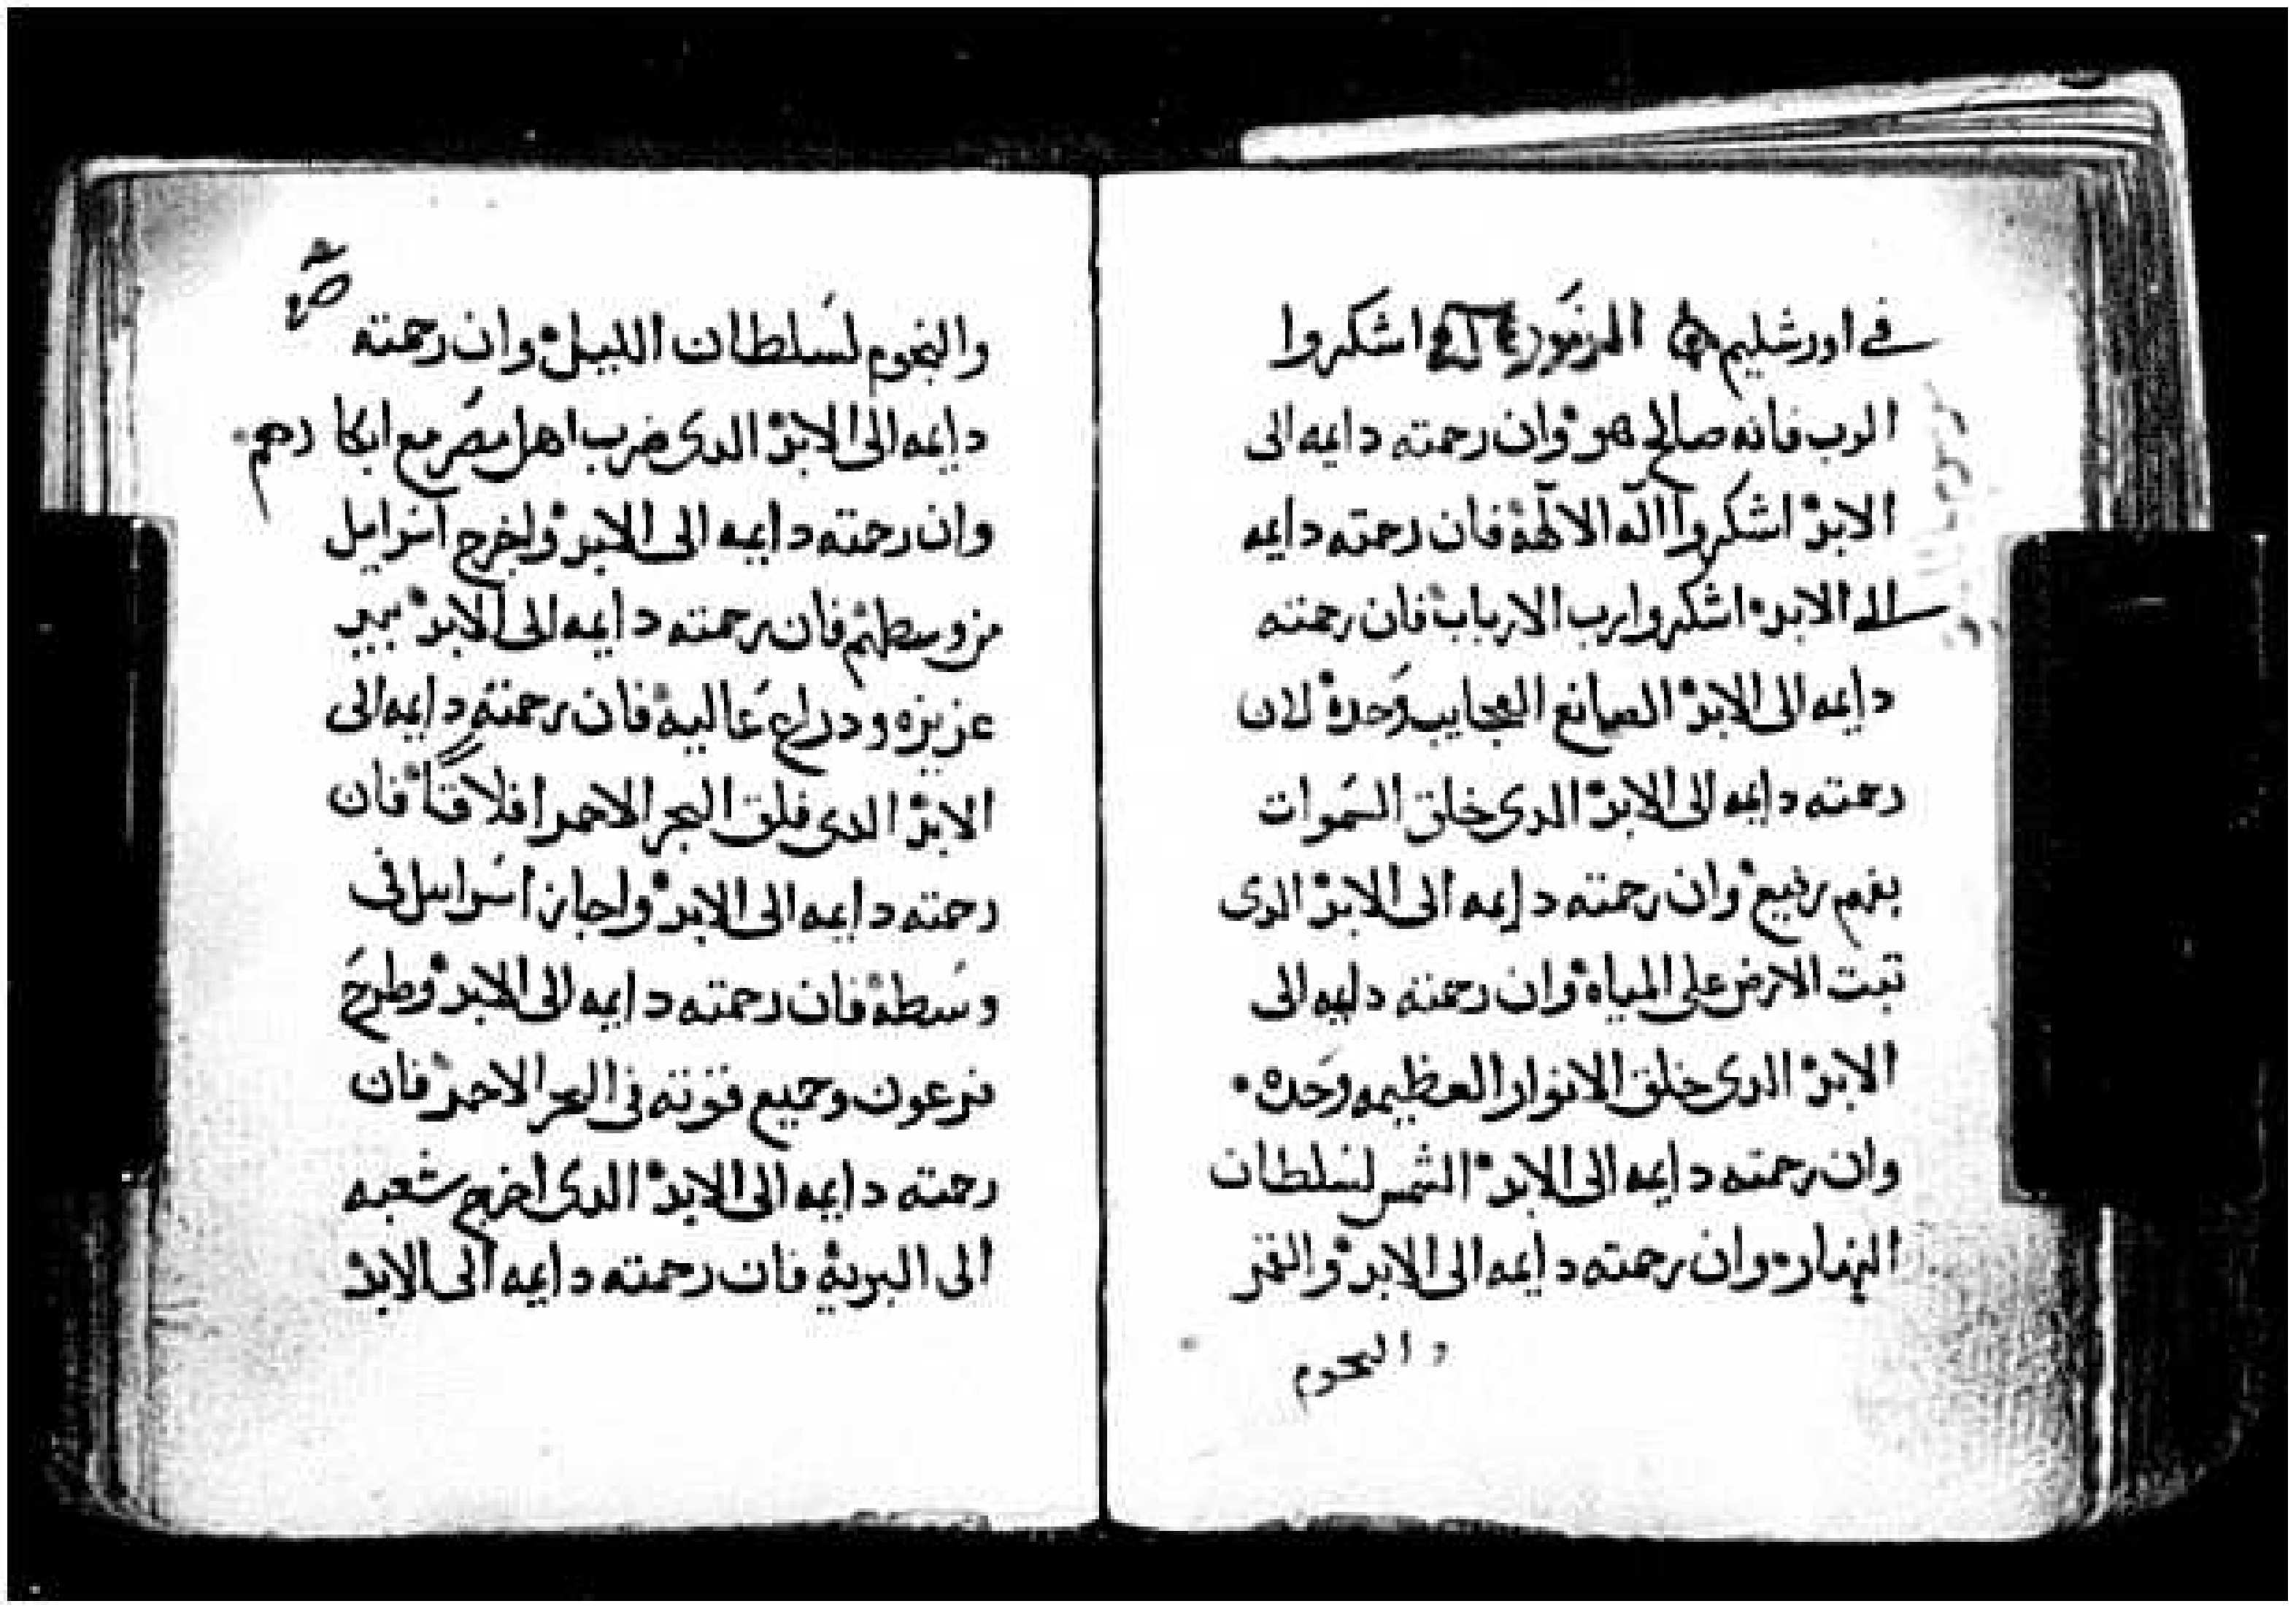 في اورشليم المزمور اشكروا
الرب فانه صالح هو وان رحمته دايمه الى
الابد اشكروا اله الالهة فان رحمته دايمه
الى الابد اشكروا رب الارباب فان رحمته
دايمه الى الابد الصانع العجايب وحده لان
رحمته دايمه الى الابد الدى خلق السموات
بفهم ربيع وان رحمته دايمه الى الابد الدى
تبت الارض على المياه وان رحمته دايمه الى
الابد الدى خلق الانوار العظيمه وحده
وان رحمته دايمه الى الابد الشمس لسلطان
النهار وان رحمته دايمه الى الابد والقمر
والنجوم
والنجوم لسلطان الليل وان رحمته
دايمه الى الابد الدى ضرب اهل مصر مع ابكارهم
وان رحمته دايمه الى الابد واخرج اسراييل
من وسطهم فان رحمته دايمه الى الابد بيد
عزيزه ودراع عاليه فان رحمته دايمه الى
الابد الدى فلق البحر الاحمر افلاقا فان
رحمته دايمه الى الابد واجاز اسراييل فى
وسطه فان رحمته دايمه الى الابد وطرح
فرعون وجميع قوته فى البحر الاحمر فان
رحمته دايمه الى الابد الدى اخرج شعبه
الى البرية فان رحمته دايمه الى الابد